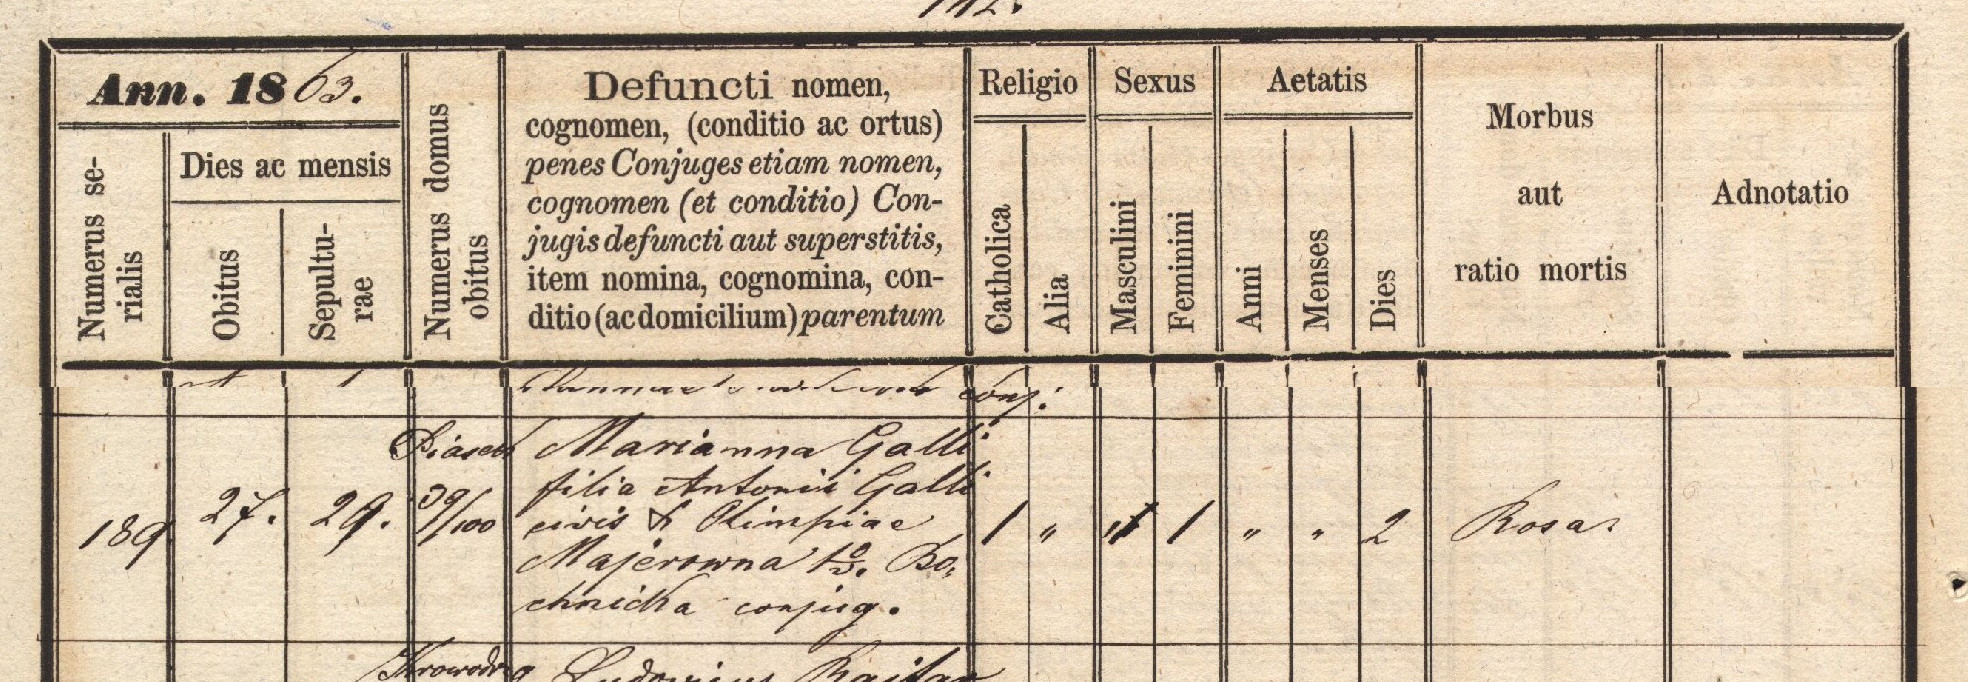 142.
Ann. 1863.
Numerus se-
rialis
Dies ac mensis
Obitus
Sepultu-
rae
Numerus domus
obitus
Defuncti nomen,
cognomen, (conditio ac ortus)
penes Conjuges etiam nomen,
cognomen (et conditio) Con-
jugis defuncti aut superstitis,
item nomina, cognomina, con-
ditio (ac domicilium) parentum
Religio
Catholica
Alia
Sexus
Masculini
Feminini
Aetatis
Anni
Menses
Dies
Morbus
aut
ratio mortis
Adnotatio
conj:
189
27.
29.
Piasek
39/100
Marianna Galli
filia Antonii Galli
civis & Olimpiae
Majerowna
Bo,
chnicka conjug.
1 " 1 " " 2
Rosa.
Krowodrza
Ludovicus